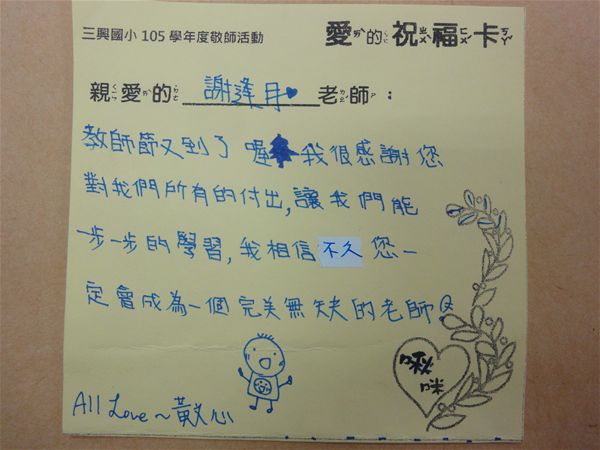 三興國小 105 學年度敬師活動
愛的祝福卡
親愛的 謝逢月 老師:
教師節又到了喔 我很感謝您
對我們所有的付出,讓我們能
一步一步的學習,我相信不久您一
定會成為一個完美無缺的老師
啾咪
All Love~黃